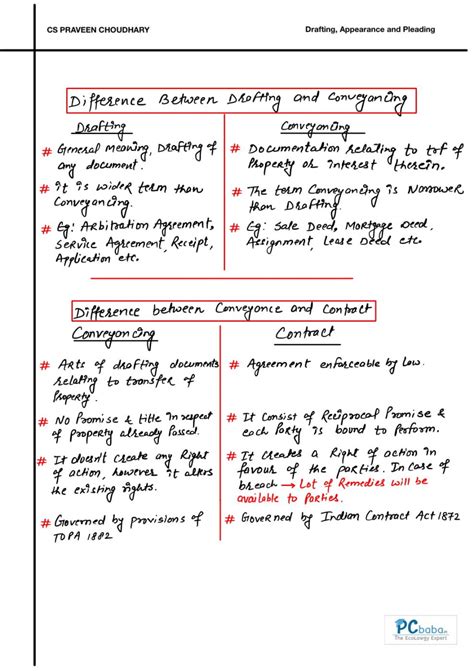 CS PRAVEEN CHOUDHARY
Drafting, Appearance and Pleading
Difference Between Drafting and Conveyancing
Drafting
# General Meaning, Drafting of
any document.
# it is wider term than
Conveyancing.
# Eg: Arbitration Agreement,
Service Agreement, Receipt,
Application etc.
Conveyancing
# Documentation relating to tof of
Property or interest therein.
# The term Conveyancing is Narrower
than Drafting.
# Eg: Sale Deed, Mortgage Deed,
Assignment, Lease Deed etc.
Difference between Conveyance and Contract
Conveyancing
# Arts of drafting documents
relating to transfer of
Property.
# No Promise & title in respect
of property already Passed.
# It doesn't create any Right
of action, however it alters
the existing rights.
# Governed by provisions of
TOPA 1882
Contract
# Agreement enforceable by Law.
# It Consist of Reciprocal Promise &
each Party is bound to Perform.
# It creates a Right of action in
favour of the parties. In case of
breach → Lot of Remedies will be
available to Parties.
# Governed by Indian Contract Act 1872
PCbaba
The EcoLowgy Expert